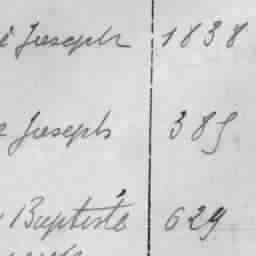 Joseph 1838
Joseph 389
Baptiste 629